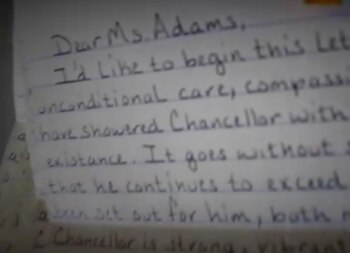 Dear Ms. Adams,
I'd like to begin this let
unconditional care, compassi
have showered Chancellor with
existance. It goes without s
that he continues to exceed
been set out for him, both
Chancellor is strong, vibrant